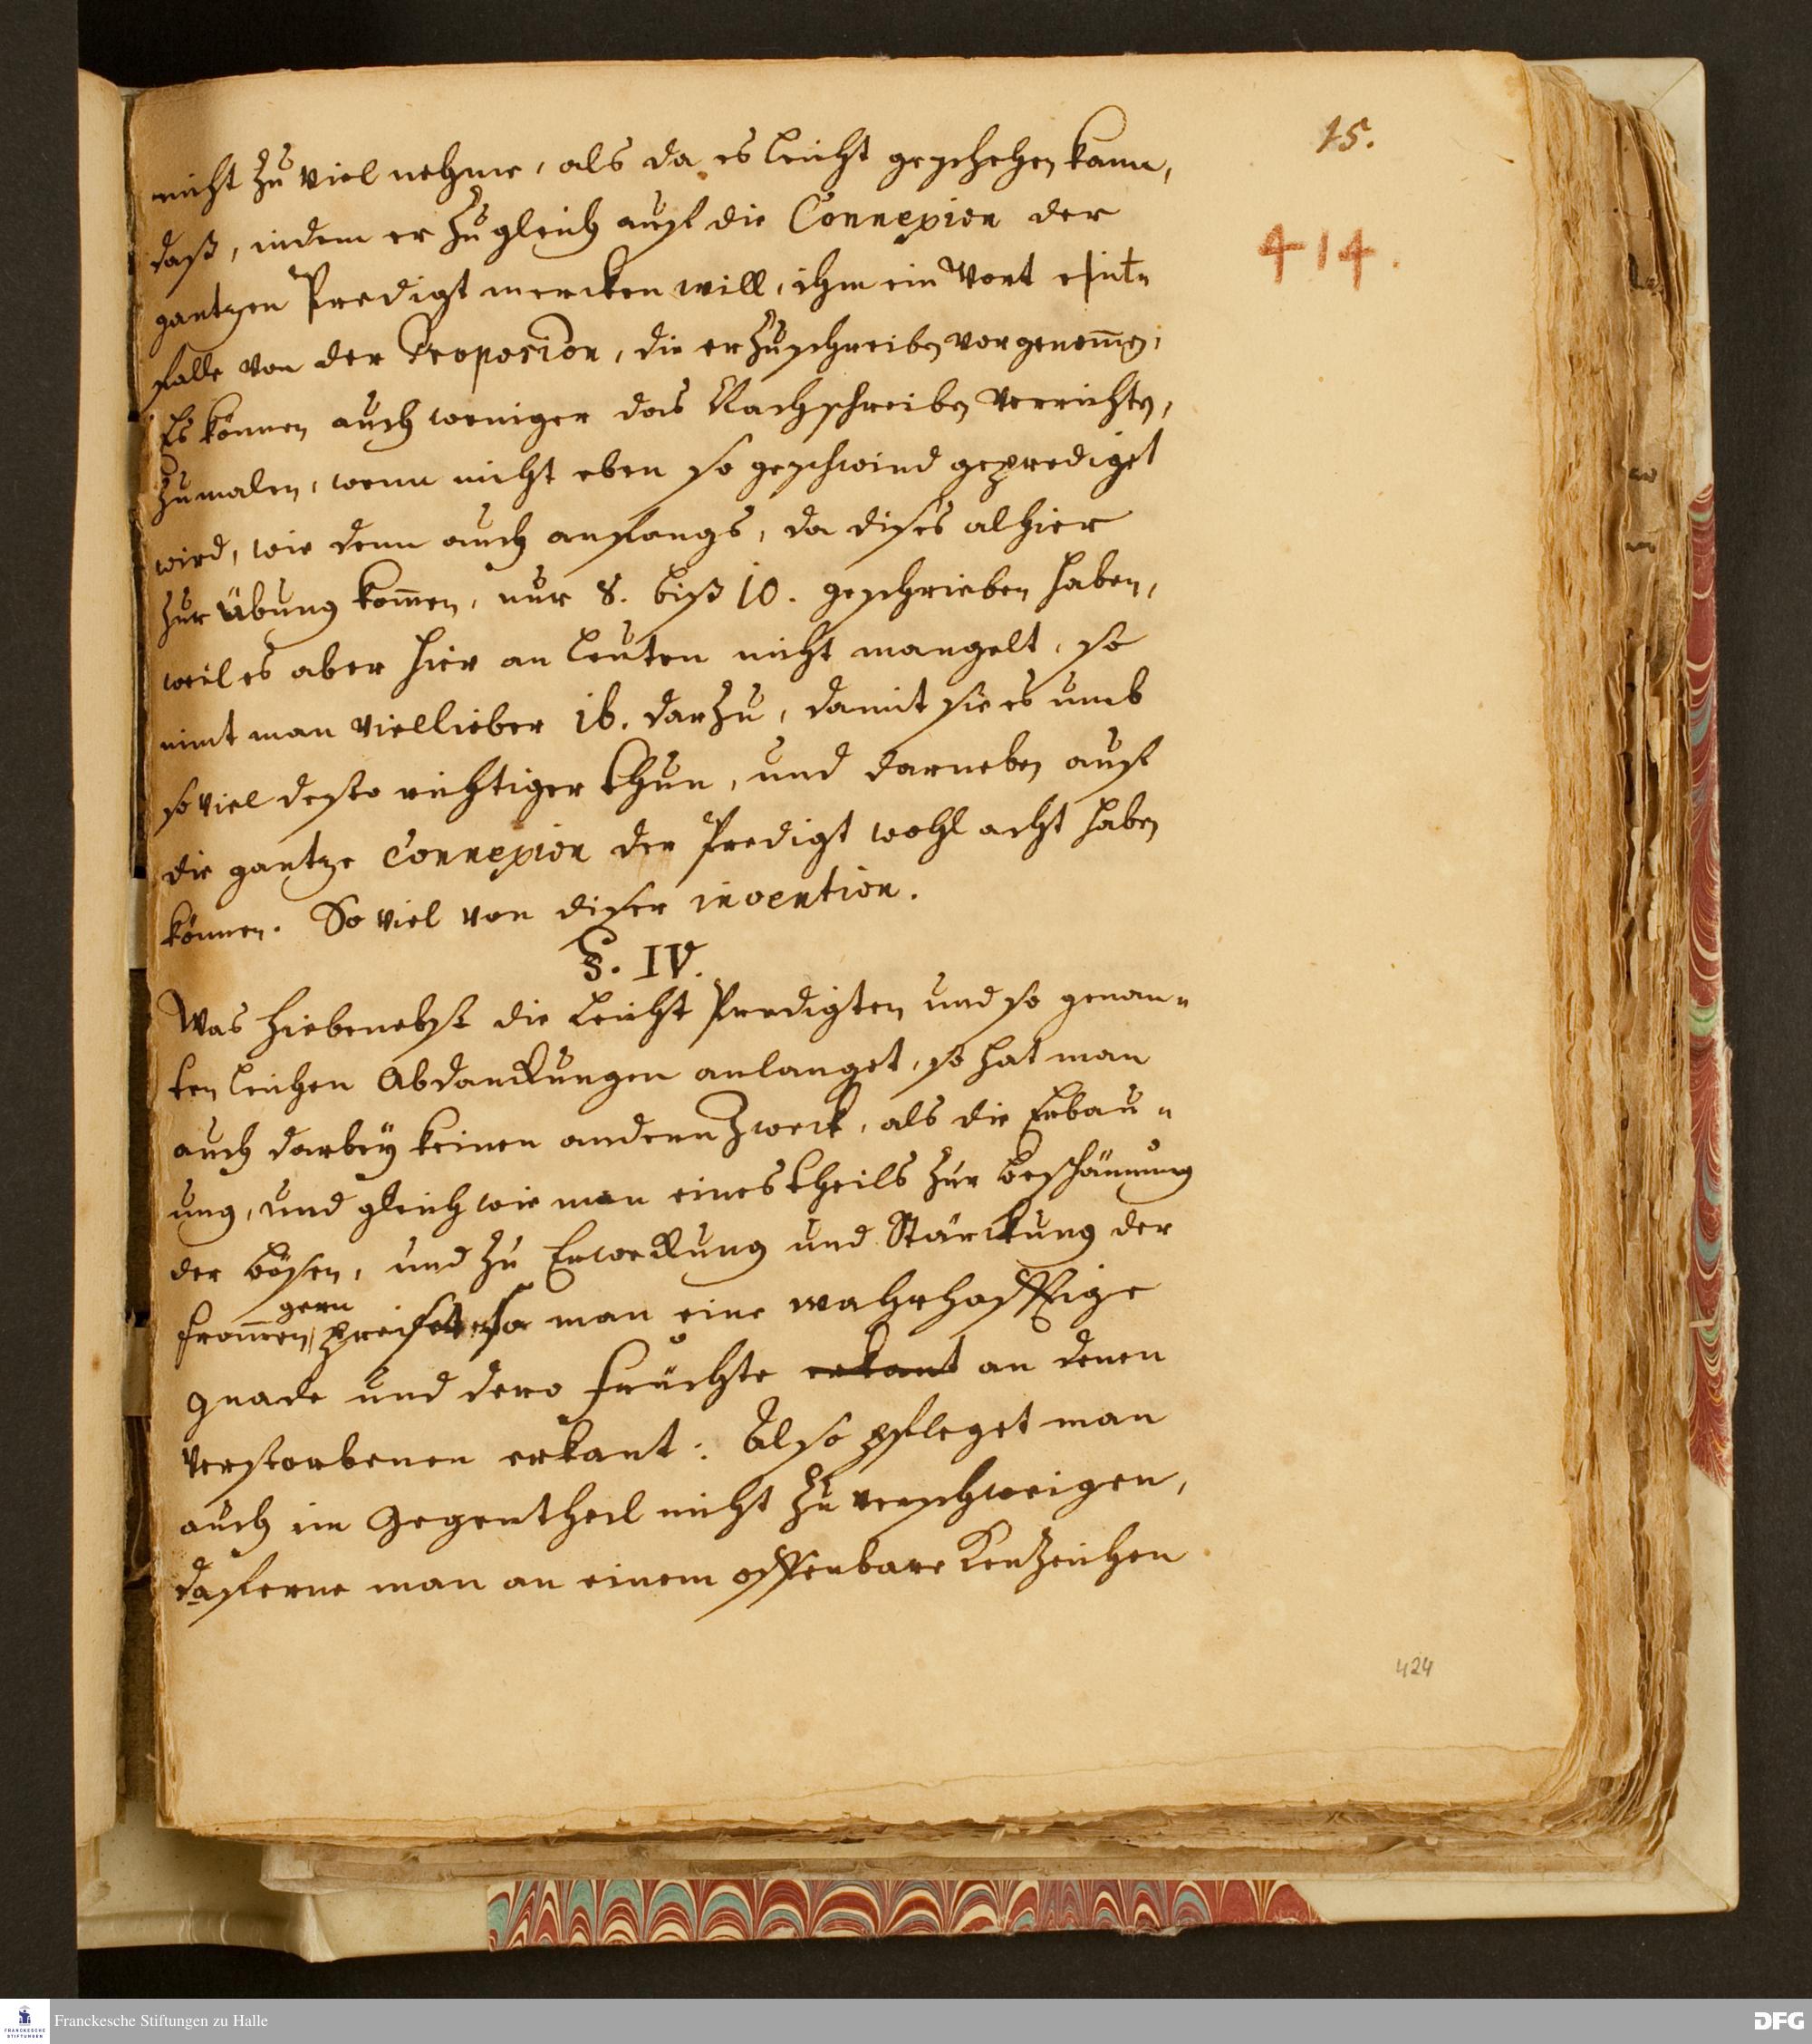 15.
414.
nicht zu viel nehme, als da es leicht geschehen kann,
daß, indem er zugleich auff die Connexion der
gantzen Predigt mercken will, ihm ein Wort
falle von der Proposion, die er zuschreiben vorgenom̅en,
Es können auch weniger das Nachschreiben verrichten,
zumalen, wenn nicht eben so geschwind geprediget
wird, wie denn auch anfangs, da dises alhier
zur Übung kom̅en, nur 8. biß 10. geschrieben haben,
weil es aber hier an Leuten nicht mangelt, so
nimt man viellieber 16. darzu, damit sie es umb
so viel desto richtiger thun, und darneben auff
die gantze Connexion der Predigt wohl acht haben
können. So viel von diser invention.
§. IV.
Was hiebenebst die Leicht Predigten und so genan-
ten Leichen Abdanckungen anlanget, so hat man
auch darbey keinen andern Zweck, als die Erbau-
ung, und gleich wie man eines theils zur beschämung
der bösen, und zu Erweckung und Stärckung der
gern
from̅en, preiset, so man eine wahrhafftige
gnade und dero früchte erkant an denen
verstorbenen erkant: Also pfleget man
auch im Gegentheil nicht zu verschweigen,
daferne man an einem offenbare Kenzeichen
424
Franckesche Stiftungen zu Halle
FRANCKESCHE STIFTUNGEN
DFG